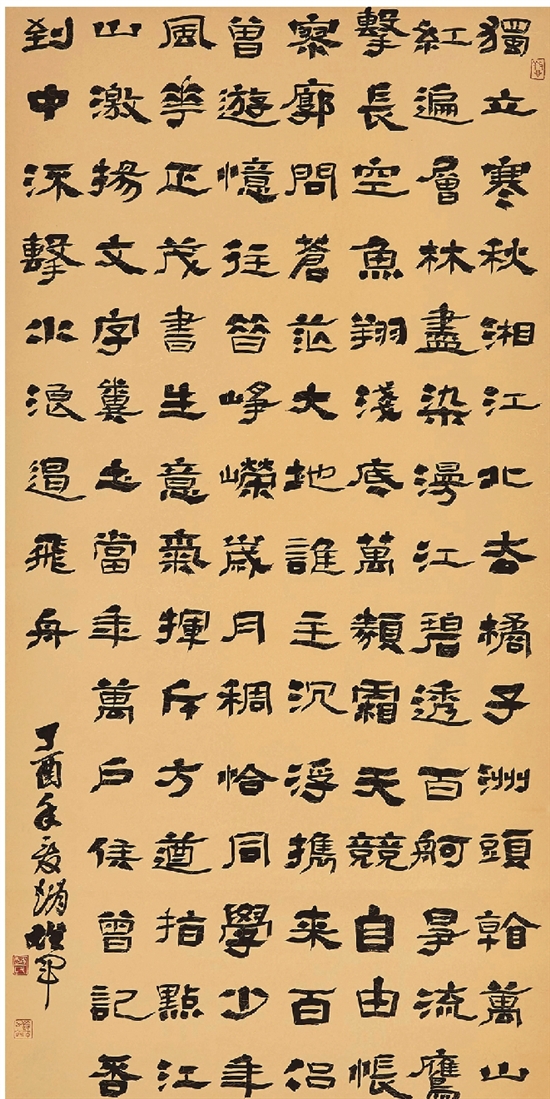 獨立寒秋湘江北去橘子洲頭看萬山
紅遍層林盡染漫江碧透百舸爭流鷹
擊長空魚翔淺底萬類霜天競自由帳
寥廓問蒼茫大地誰主沉浮携来百侣
曾游憶往昔崢嶸歲月稠恰同學少年
風華正茂書生意氣揮斥方遒指點江
山激揚文字糞土當年萬户侯曾記否
到中流擊水浪遏飛舟
丁酉年夏